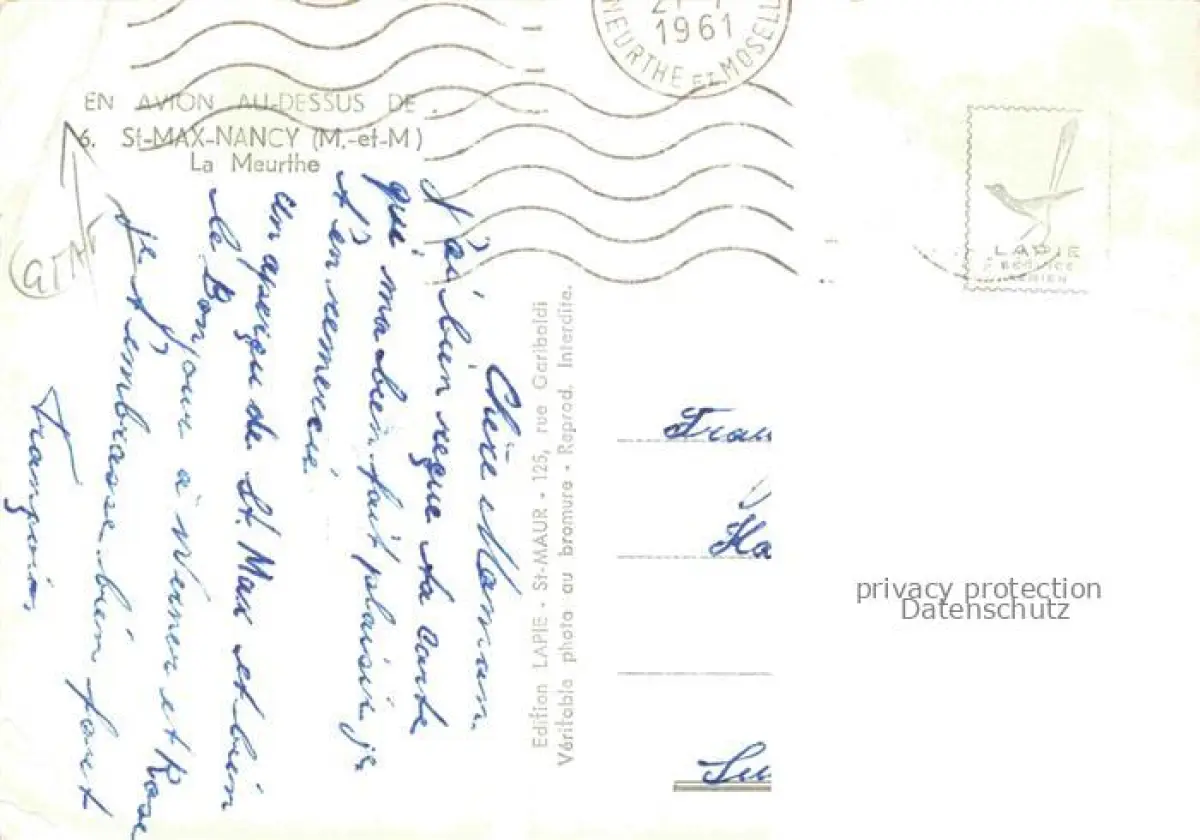 21-7
1961
MEURTHE ET MOSELL
EN AVION AU-DESSUS DE
6. St-MAX-NANCY (M.-et-M)
La Meurthe
LAPIE
SERVICE
AERIEN
Chère Maman.
J'ai bien reçue ta carte
qui m'a bien fait plaisir je
t'en remercie
Un aperçu de St. Max et bien
le Bonjour à Werner et Rose
je t'embrasse bien fort
François,
Edition LAPIE - St-MAUR - 125, rue Garibaldi
Véritable photo au bromure - Reprod. Interdite.
Frau
Ha
privacy protection
Datenschutz